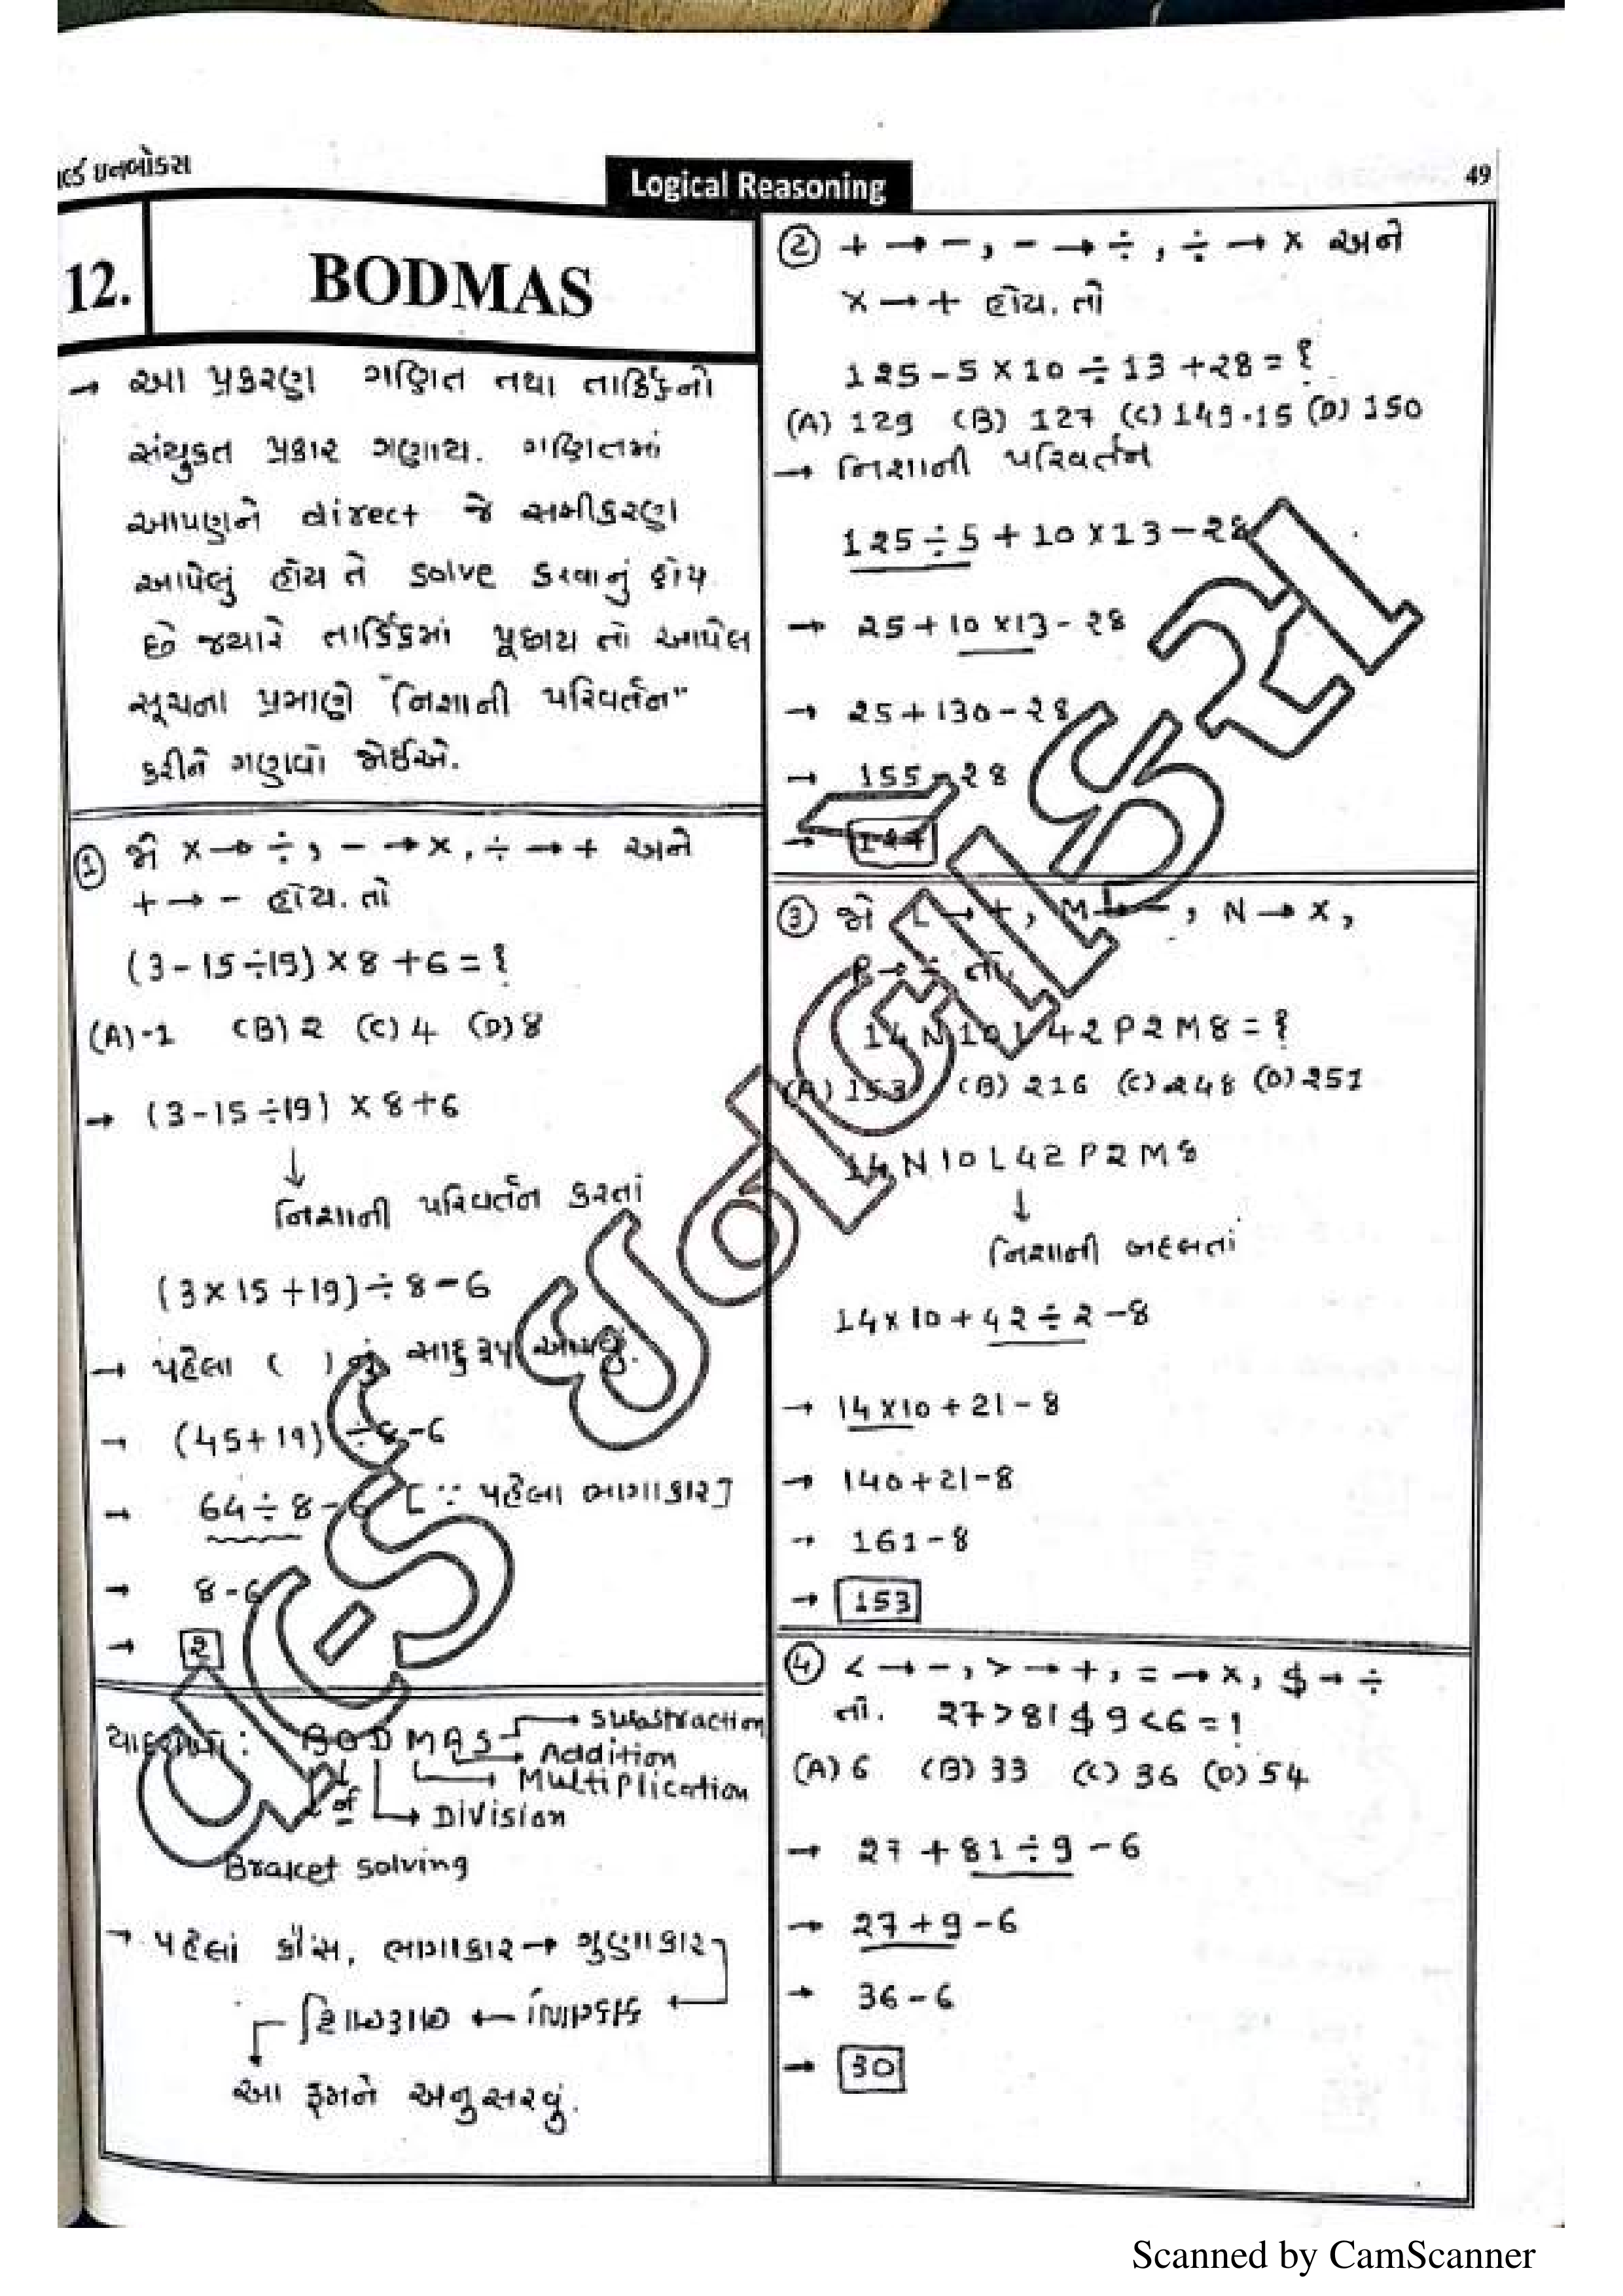 ાર્ડ ઇનબોકસ
Logical Reasoning
49
12.
BODMAS
→ આ પ્રકરણ ગણિત તથા તાર્કિકનો
સંયુકત પ્રકાર ગણાય. ગણિતમાં
આપણને direct જે સમીકરણ
આપેલું હોય તે solve કરવાનું હોય
છે જ્યારે તાર્કિકમાં પૂછાય તો આપેલ
સૂચના પ્રમાણે "નિશાની પરિવર્તન"
કરીને ગણવો જોઈએ.
① જો × → ÷, - → ×, ÷ → + અને
+ → - હોય. તો
(3 - 15 ÷ 19) × 8 + 6 = ?
(A) -1 (B) 2 (C) 4 (D) 8
→ (3 - 15 ÷ 19) × 8 + 6
↓
નિશાની પરિવર્તન કરતાં
(3 × 15 + 19) ÷ 8 - 6
→ પહેલા ( ) નું સાદુ રૂપ આપવું.
→ (45 + 19) ÷ 8 - 6
→ 64 ÷ 8 - 6 [∵ પહેલા ભાગાકાર]
→ 8 - 6
→ 2
યાદ રાખો: BODMAS → Substraction
→ Addition
→ Multiplication
of → Division
Braket solving
→ પહેલાં કૌંસ, ભાગાકાર → ગુણાકાર
આ ક્રમને અનુસરવું.
② + → -, - → ÷, ÷ → × અને
× → + હોય. તો
125 - 5 × 10 ÷ 13 + 28 = ?
(A) 129 (B) 127 (C) 149.15 (D) 150
→ નિશાની પરિવર્તન
125 ÷ 5 + 10 × 13 - 28
→ 25 + 10 × 13 - 28
→ 25 + 130 - 28
→ 155 - 28
→ 127
③ જો L → +, M → -, N → ×,
P → ÷ તો.
14 N 10 L 42 P 2 M 8 = ?
(A) 153 (B) 216 (C) 248 (D) 251
14 N 10 L 42 P 2 M 8
↓
નિશાની બદલતાં
14 × 10 + 42 ÷ 2 - 8
→ 14 × 10 + 21 - 8
→ 140 + 21 - 8
→ 161 - 8
→ 153
④ < → -, > → +, = → ×, $ → ÷
તો. 27 > 81 $ 9 < 6 = ?
(A) 6 (B) 33 (C) 36 (D) 54
→ 27 + 81 ÷ 9 - 6
→ 27 + 9 - 6
→ 36 - 6
→ 30
Scanned by CamScanner